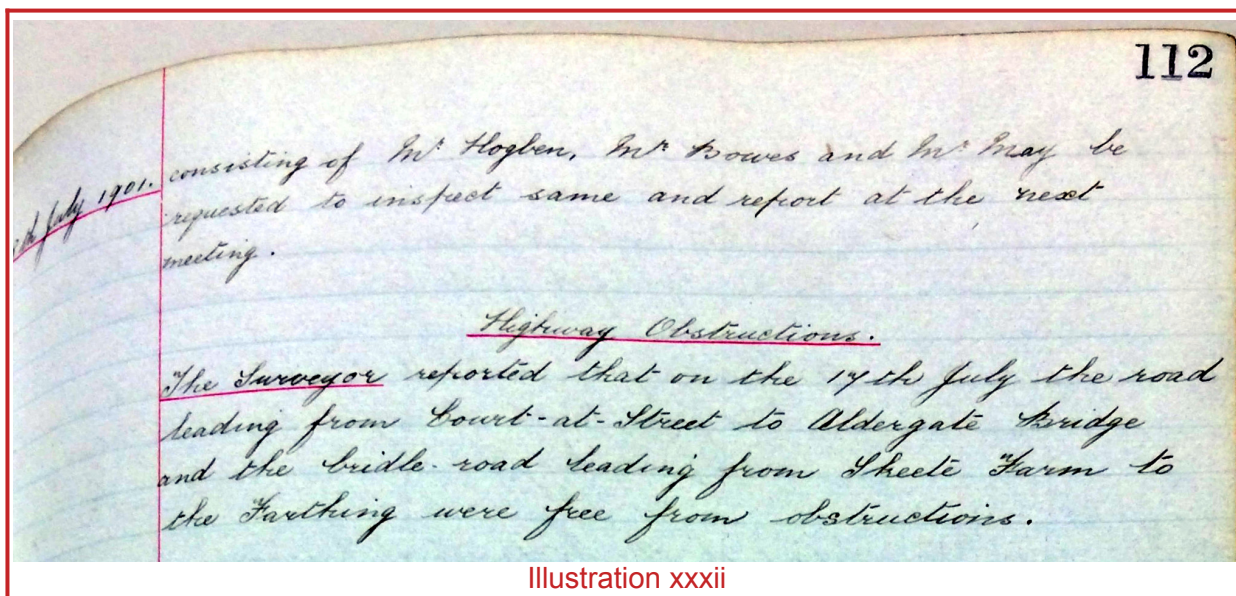 112
consisting of Mr Hogben, Mr Bowes and Mr May be
th July 1901.
requested to inspect same and report at the next
meeting.
Highway Obstructions.
The Surveyor reported that on the 17th July the road
leading from Court-at-Street to Aldergate Bridge
and the bridle-road leading from Skeete Farm to
the Farthing were free from obstructions.
Illustration xxxii